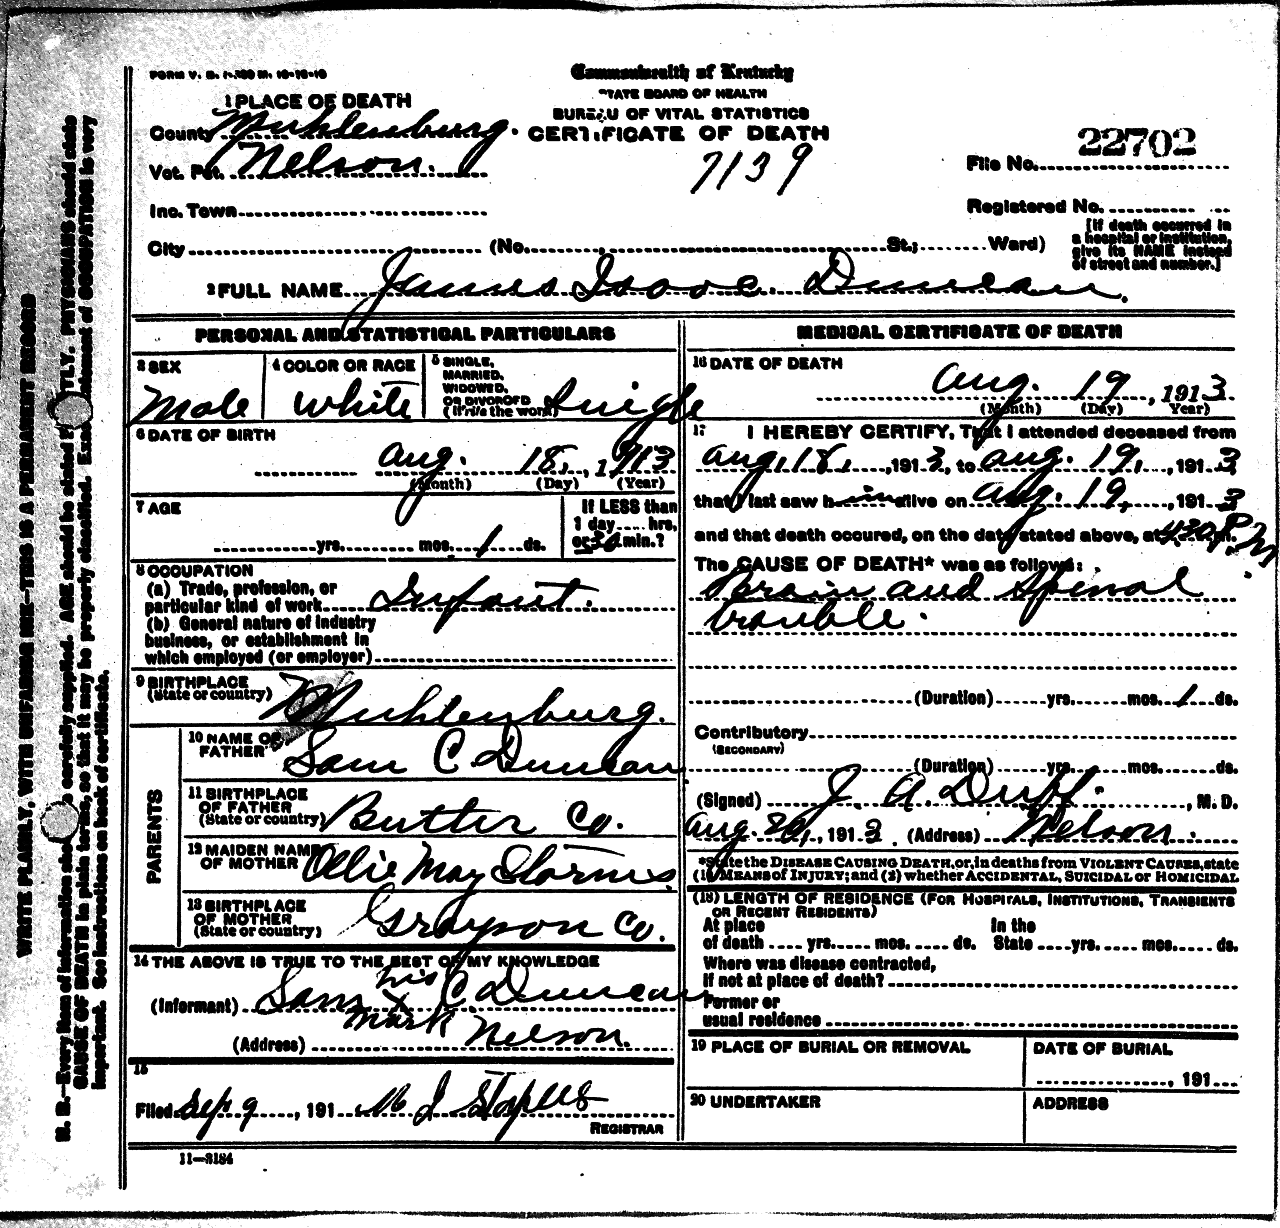 FORM V. S. 1-300 M. 10-10-10
Commonwealth of Kentucky
STATE BOARD OF HEALTH
BUREAU OF VITAL STATISTICS
CERTIFICATE OF DEATH
7139
1 PLACE OF DEATH
County Muhlenburg.
Vot. Pct. Nelson.
Inc. Town
City (No. St.; Ward)
File No. 22702
Registered No.
[If death occurred in
a hospital or institution,
give its NAME instead
of street and number.]
2 FULL NAME James Isaac Duncan.
PERSONAL AND STATISTICAL PARTICULARS
3 SEX
Male
4 COLOR OR RACE
White
5 SINGLE,
MARRIED,
WIDOWED,
OR DIVORCED
(Write the word) Single
6 DATE OF BIRTH
Aug. 18, 1913
(Month) (Day) (Year)
7 AGE
yrs. mos. 1 ds.
If LESS than
1 day hrs.
or 30 min.?
8 OCCUPATION
(a) Trade, profession, or
particular kind of work Infant.
(b) General nature of industry
business, or establishment in
which employed (or employer)
9 BIRTHPLACE
(State or country) Muhlenburg.
PARENTS
10 NAME OF
FATHER Sam C Duncan
11 BIRTHPLACE
OF FATHER
(State or country) Butler Co.
12 MAIDEN NAME
OF MOTHER Ollie May Storms.
13 BIRTHPLACE
OF MOTHER
(State or country) Grayson Co.
14 THE ABOVE IS TRUE TO THE BEST OF MY KNOWLEDGE
his
(Informant) Sam X C Duncan
mark
(Address) Nelson.
15
Filed Sep 9, 191 M J Staples
REGISTRAR
11—3184
MEDICAL CERTIFICATE OF DEATH
16 DATE OF DEATH
Aug. 19, 1913
(Month) (Day) (Year)
17 I HEREBY CERTIFY, That I attended deceased from
Aug, 18, , 1913, to Aug. 19, , 1913
that I last saw him alive on Aug. 19, , 1913
and that death occured, on the date stated above, at 4.30 P.M.
The CAUSE OF DEATH* was as follows:
Brain and Spinal
trouble.
(Duration) yrs. mos. 1 ds.
Contributory
(SECONDARY)
(Duration) yrs. mos. ds.
(Signed) J. A Duff. , M. D.
Aug. 20, , 1913 (Address) Nelson.
*State the DISEASE CAUSING DEATH, or, in deaths from VIOLENT CAUSES, state
(1) MEANS OF INJURY; and (2) whether ACCIDENTAL, SUICIDAL OR HOMICIDAL
(18) LENGTH OF RESIDENCE (FOR HOSPITALS, INSTITUTIONS, TRANSIENTS
OR RECENT RESIDENTS)
At place In the
of death yrs. mos. ds. State yrs. mos. ds.
Where was disease contracted,
If not at place of death?
Former or
usual residence
19 PLACE OF BURIAL OR REMOVAL
DATE OF BURIAL
, 191
20 UNDERTAKER
ADDRESS
WRITE PLAINLY, WITH UNFADING INK—THIS IS A PERMANENT RECORD
N. B.—Every item of information should be carefully supplied. AGE should be stated EXACTLY. PHYSICIANS should state
CAUSE OF DEATH in plain terms, so that it may be properly classified. Exact statement of OCCUPATION is very
important. See instructions on back of certificate.